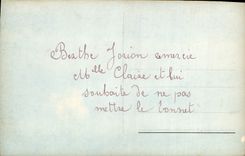 Berthe Jorion remercie
Mlle Claire et lui
souhaite de ne pas
mettre le bonnet